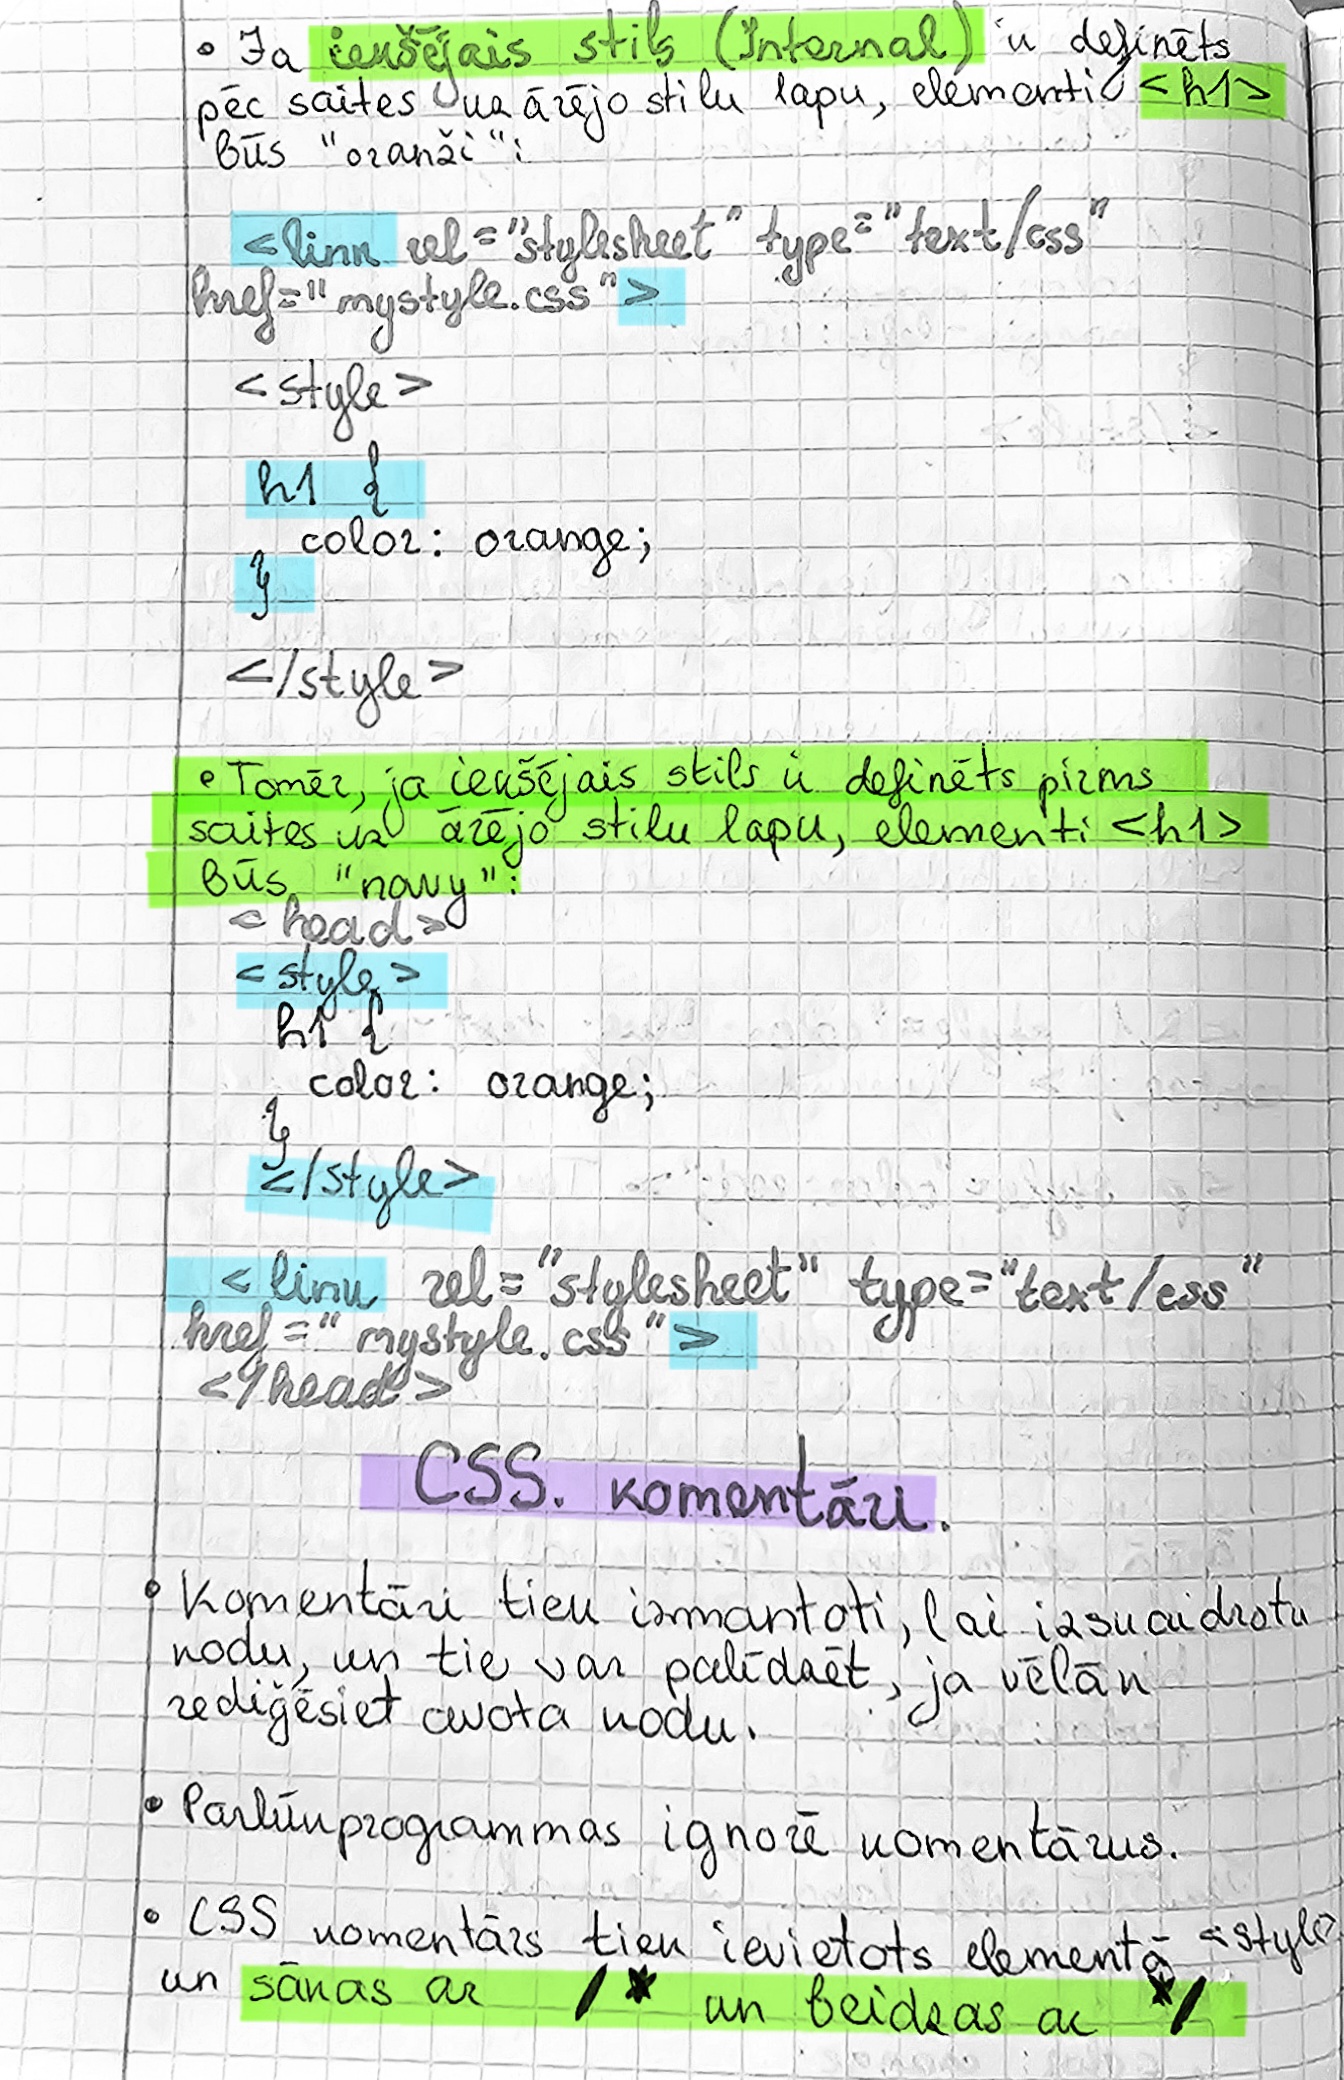 • Ja iekšējais stils (Internal) ir definēts
pēc saites uz ārējo stilu lapu, elementi <h1>
būs "oranži":
<link rel="stylesheet" type="text/css"
href="mystyle.css">
<style>
h1 {
color: orange;
}
</style>
• Tomēr, ja iekšējais stils ir definēts pirms
saites uz ārējo stilu lapu, elementi <h1>
būs "navy":
<head>
<style>
h1 {
color: orange;
}
</style>
<link rel="stylesheet" type="text/css"
href="mystyle.css">
</head>
CSS. komentāri.
• Komentāri tiek izmantoti, lai izskaidrotu
kodu, un tie var palīdzēt, ja vēlāk
rediģēsiet avota kodu.
• Pārlūkprogrammas ignorē komentārus.
• CSS komentārs tiek ievietots elementā <style>
un sākas ar /* un beidzas ar */